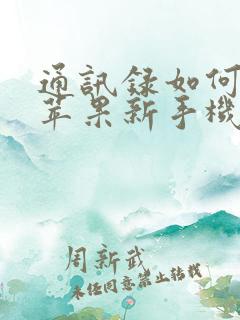 通訊録如何
苹果新手機
周新武
未经同意禁止转载